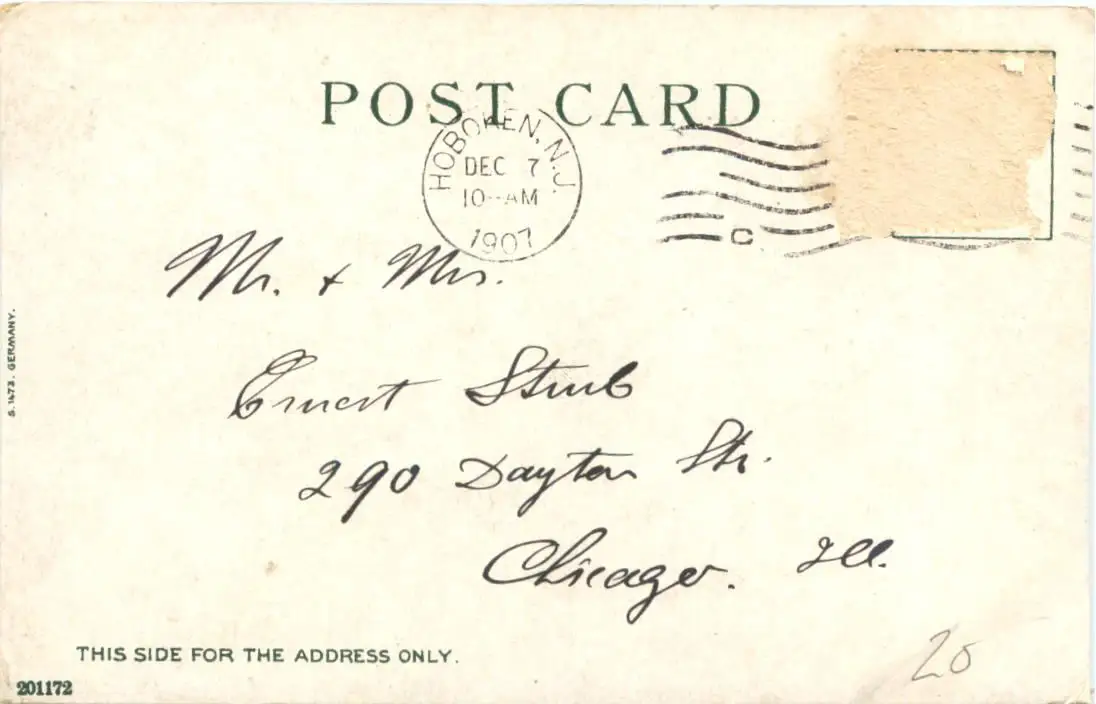 POST CARD
HOBOKEN, N.J.
DEC 7
10--AM
1907
C
Mr. + Mrs.
Ernest Strub
290 Dayton Str.
Chicago. Ill.
S. 1473. GERMANY.
THIS SIDE FOR THE ADDRESS ONLY.
201172
20